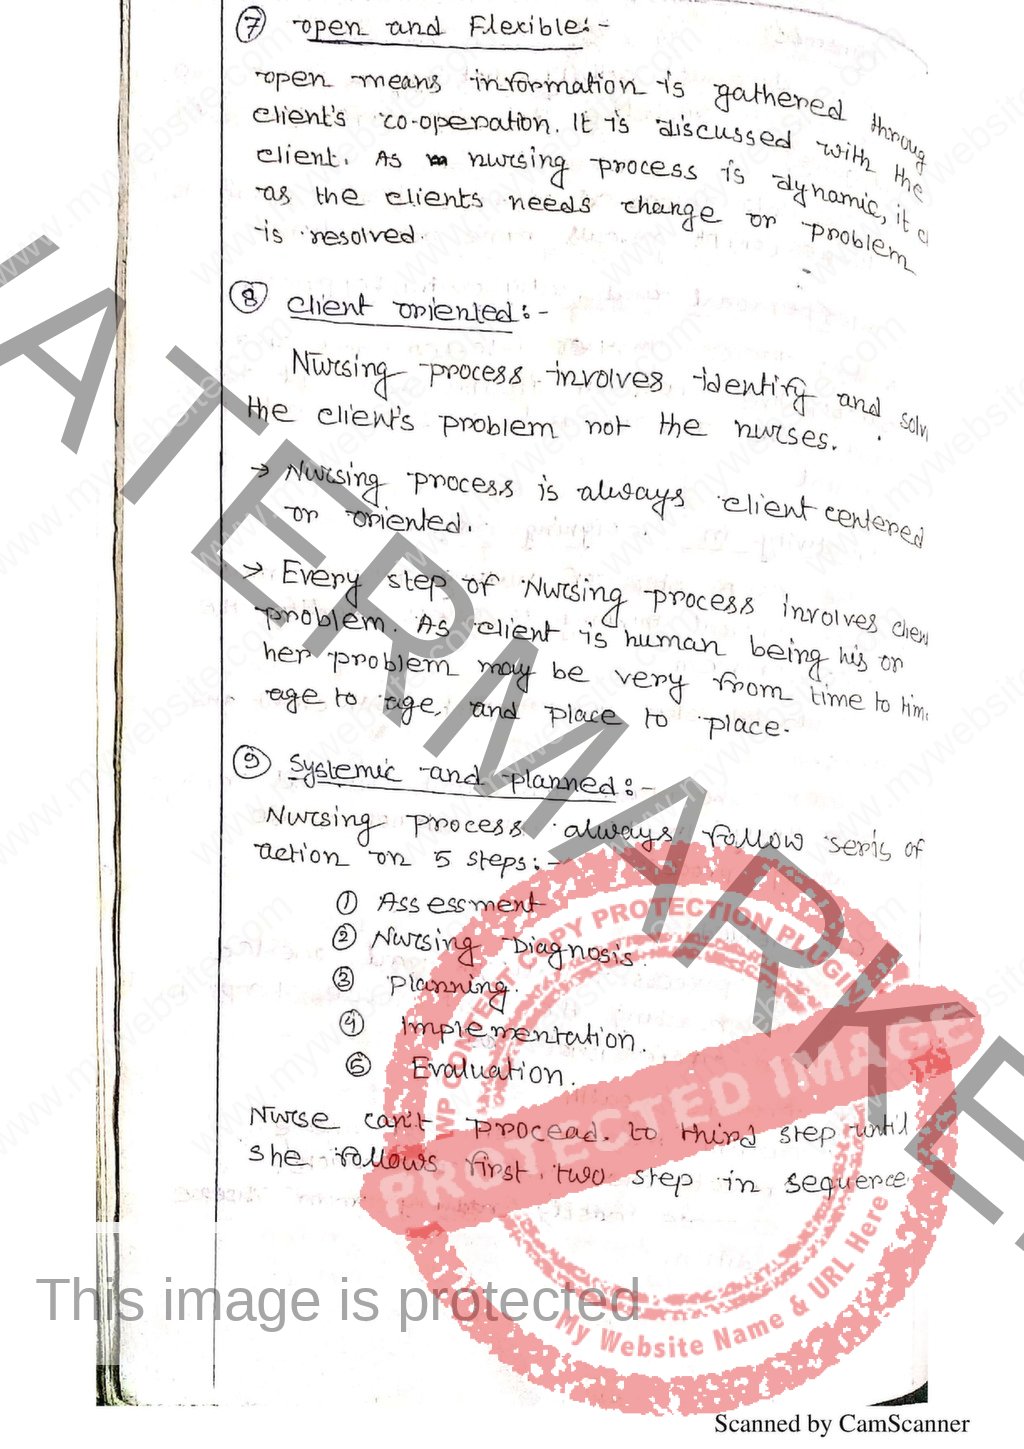 7 open and Flexible:-
open means information is gathered throug
client's co-operation. It is discussed with the
client. As nursing process is dynamic, it c
as the clients needs change or problem
is resolved.
8 client oriented:-
Nursing process involves identify and solv
the client's problem not the nurses.
→ Nursing process is always client centered
or oriented.
→ Every step of Nursing process involves clien
problem. As client is human being his or
her problem may be very from time to tim
age to age, and place to place.
9 Systemic and planned:-
Nursing process always follow seris of
action on 5 steps:-
1 Assessment
2 Nursing Diagnosis
3 planning.
4 Implementation.
5 Evaluation.
Nurse can't procead. to third step until
she follows first two step in sequence
WATERMARKE
WP CONTENT COPY PROTECTION PLUGIN
PROTECTED IMAGE
My Website Name & URL Here
This image is protected
www.mywebsite.com
Scanned by CamScanner